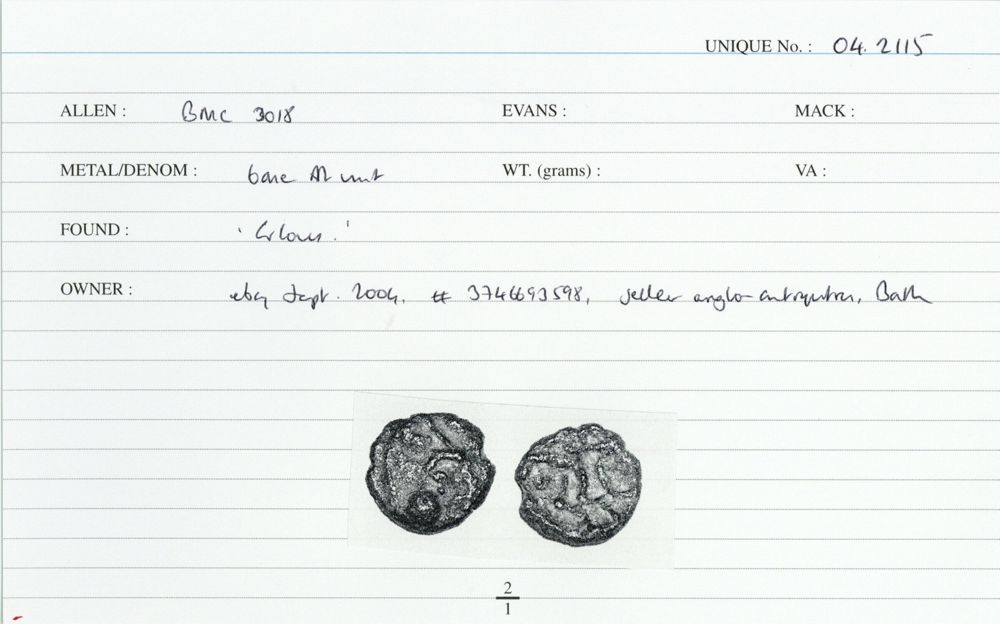 UNIQUE No. : 04. 2115
ALLEN : BMC 3018 EVANS : MACK :
METAL/DENOM : base AR unit WT. (grams) : VA :
FOUND : ' Glos. '
OWNER : ebay Sept. 2004, # 3746693598, seller anglo-antiquities, Bath
2
1